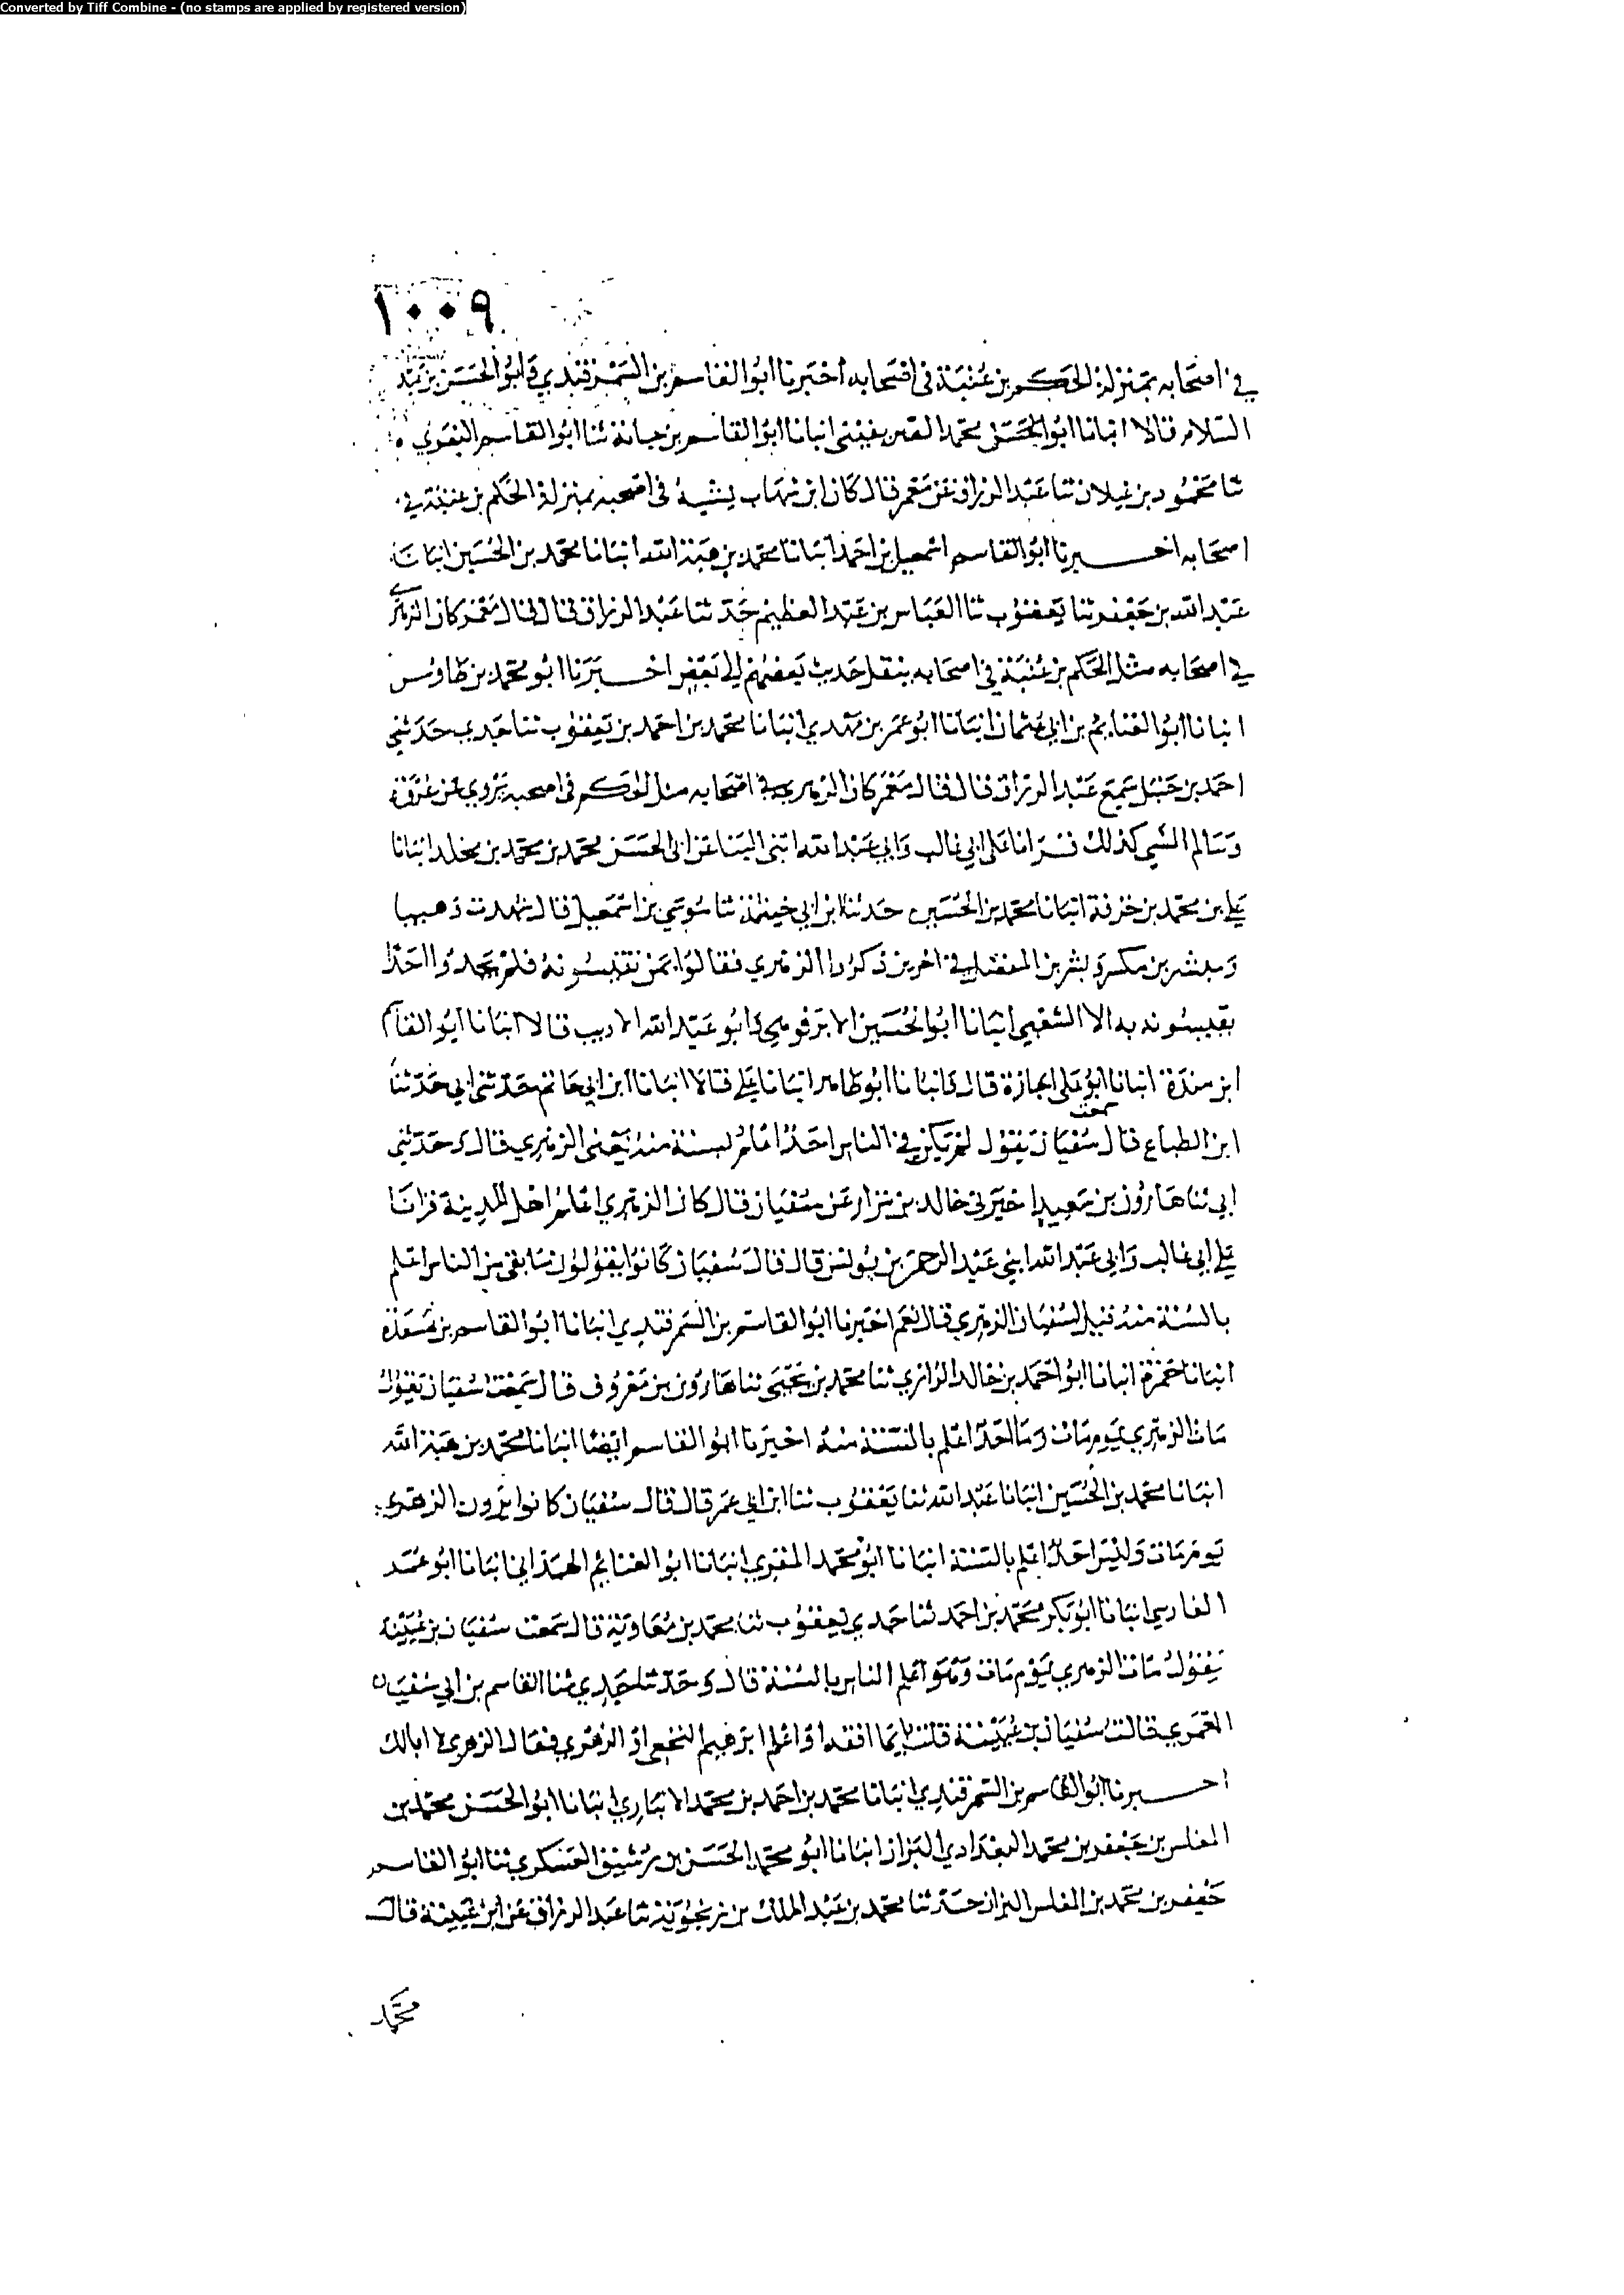 Converted by Tiff Combine - (no stamps are applied by registered version)
١٠٠٩
في اصحابه بمنزلة الحكم بن عتيبة في اصحابه اخبرنا ابو القاسم بن السمرقندي وابو الحسن بن عبد
السلام قالا انبانا ابو محمد الصريفيني انبانا ابو القاسم بن حبابة ثنا ابو القاسم البغوي
ثنا محمود بن غيلان ثنا عبد الرزاق عن معمر قال كان ابن شهاب يشبه في اصحبه بمنزلة الحكم بن عتيبة في
اصحابه اخبرنا ابو القاسم اسمعيل بن احمد انبانا محمد بن هبة الله انبانا محمد بن الحسين انبانا
عبد الله بن جعفر ثنا يعقوب ثنا العباس بن عبد العظيم حدثنا عبد الرزاق قال قال معمر كان الزهري
في اصحابه مثل الحكم بن عتيبة في اصحابه ينقل حديث بعضهم الى بعض اخبرنا ابو محمد بن طاوس
انبانا ابو الغنايم بن ابي عثمان انبانا ابو عمر بن مهدي انبانا محمد بن احمد بن يعقوب ثنا جدي حدثني
احمد بن حنبل سمع عبد الرزاق قال قال معمر كان الزهري في اصحابه مثل الحكم في اصحبه يروي عن عروة
وسالم الشي كذلك قرانا على ابي غالب وابي عبد الله ابني البنا عن ابي الحسن محمد بن محمد بن مخلد انبانا
علي بن محمد بن خزفة انبانا محمد بن الحسين حدثنا ابن ابي خيثمة ثنا موسى بن اسمعيل قال شهدت وهيبا
وبشر بن مكسر وبشر بن المفضل في اخرين ذكروا الزهري فقالوا بمن تقيسونه فلم يجدوا احدا
يقيسونه به الا الشعبي انبانا ابو الحسين الابرقوهي وابو عبد الله الاديب قالا انبانا ابو القاسم
ابن مندة انبانا ابو علي اجازة قال وانبانا ابو طاهر انبانا علي قالا انبانا ابن ابي حاتم حدثني ابي حدثنا
ابن الطباع قال سمعت سفيان يقول لم يكن في الناس احد اعلم بسنة منه يعني الزهري قال وحدثني
ابي ثنا هارون بن سعيد اخبرني خالد بن نزار عن سفيان قال كان الزهري اعلم اهل المدينة قرانا
علي ابي غالب وابي عبد الله ابني عبد الرحمن بن يونس قال قال سفيان كانوا يقولون ما بقي من الناس اعلم
بالسنة منه قيل لسفيان الزهري قال نعم اخبرنا ابو القاسم بن السمرقندي انبانا ابو القاسم بن مسعدة
انبانا حمزة انبانا ابو احمد بن خالد الرازي ثنا محمد بن يحيى ثنا هارون بن معروف قال سمعت سفيان يقول
مات الزهري يوم مات وما احد اعلم بالسنة منه اخبرنا ابو القاسم ايضا انبانا محمد بن هبة الله
انبانا محمد بن الحسين انبانا عبد الله ثنا يعقوب ثنا ابن ابي عمر قال قال سفيان كانوا يرون الزهري
يوم مات وليس احد اعلم بالسنة انبانا ابو محمد المقري انبانا ابو الغنايم الهمذاني انبانا ابو عمر
الفارسي انبانا ابو بكر محمد بن احمد ثنا جدي يعقوب ثنا محمد بن معاوية قال سمعت سفيان بن عيينة
يقول مات الزهري يوم مات وهو اعلم الناس بالسنة قال وحدثنا جدي ثنا القاسم بن ابي سفيان
المعمري قالت سفيان بن عيينة قلت ايما افقه او اعلم ابرهيم النخعي او الزهري فقال الزهري لا ابالك
اخبرنا ابو القاسم بن السمرقندي انبانا محمد بن احمد بن محمد الانباري انبانا ابو الحسن محمد بن
المغلس بن جعفر بن محمد البغدادي البزاز انبانا ابو محمد الحسن بن رشيق العسكري ثنا ابو القاسم
جعفر بن محمد بن المغلس البزاز حدثنا محمد بن عبد الملك بن زنجويه ثنا عبد الرزاق عن ابن عيينة قال
محمد